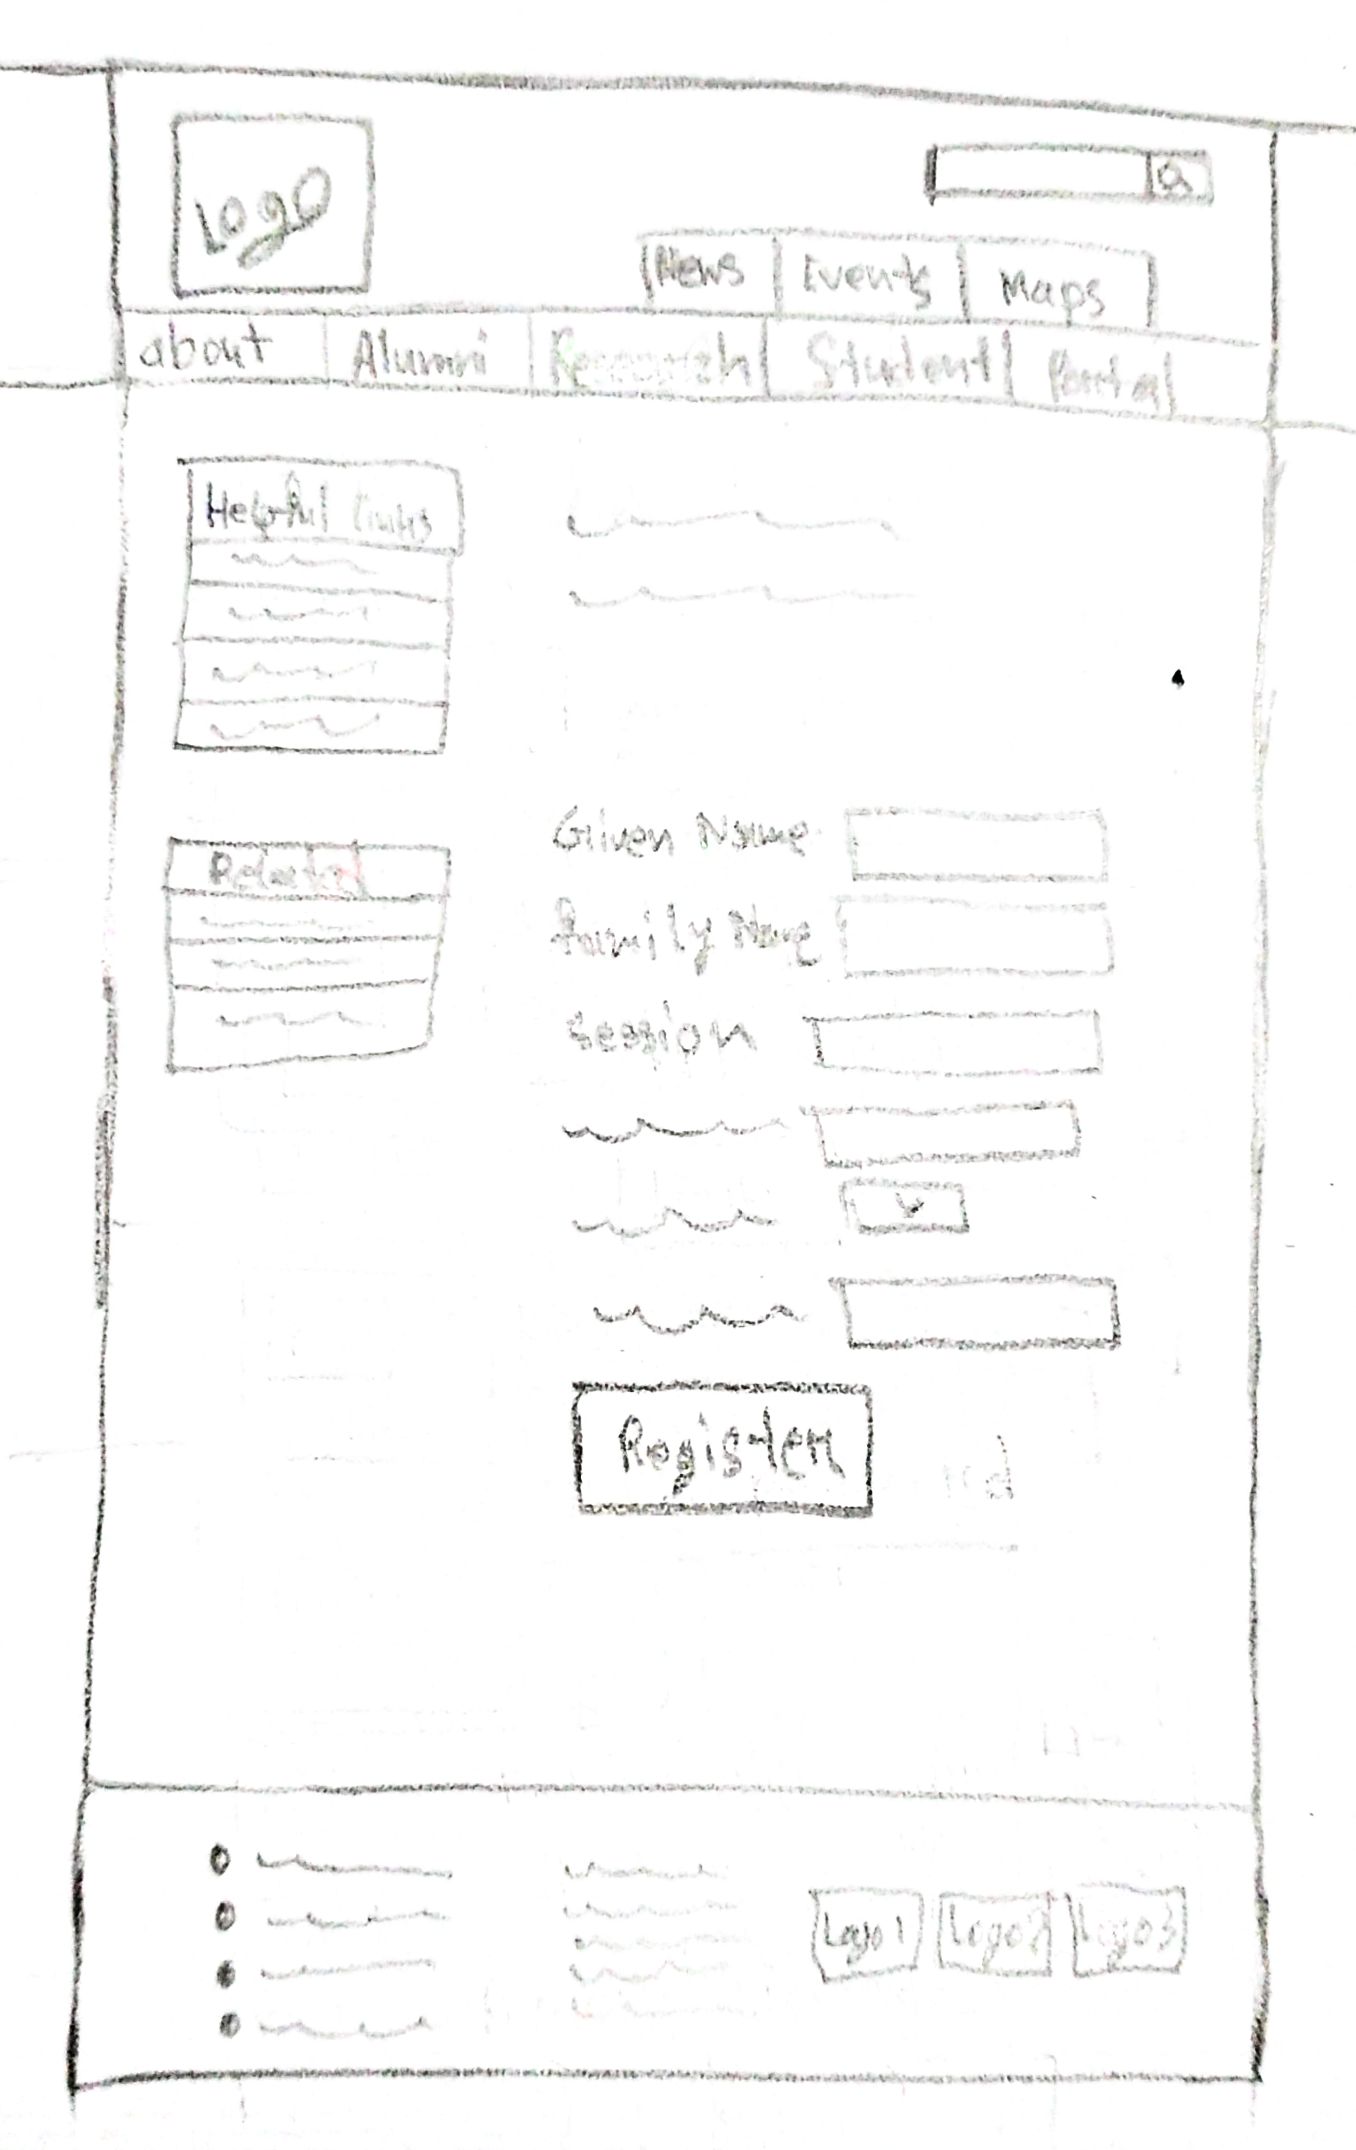 Logo
News Events Maps
about Alumni Research Student Portal
Helpful links
Given Name
Related
Family Name
Session
Register
Logo1 Logo2 Logo3